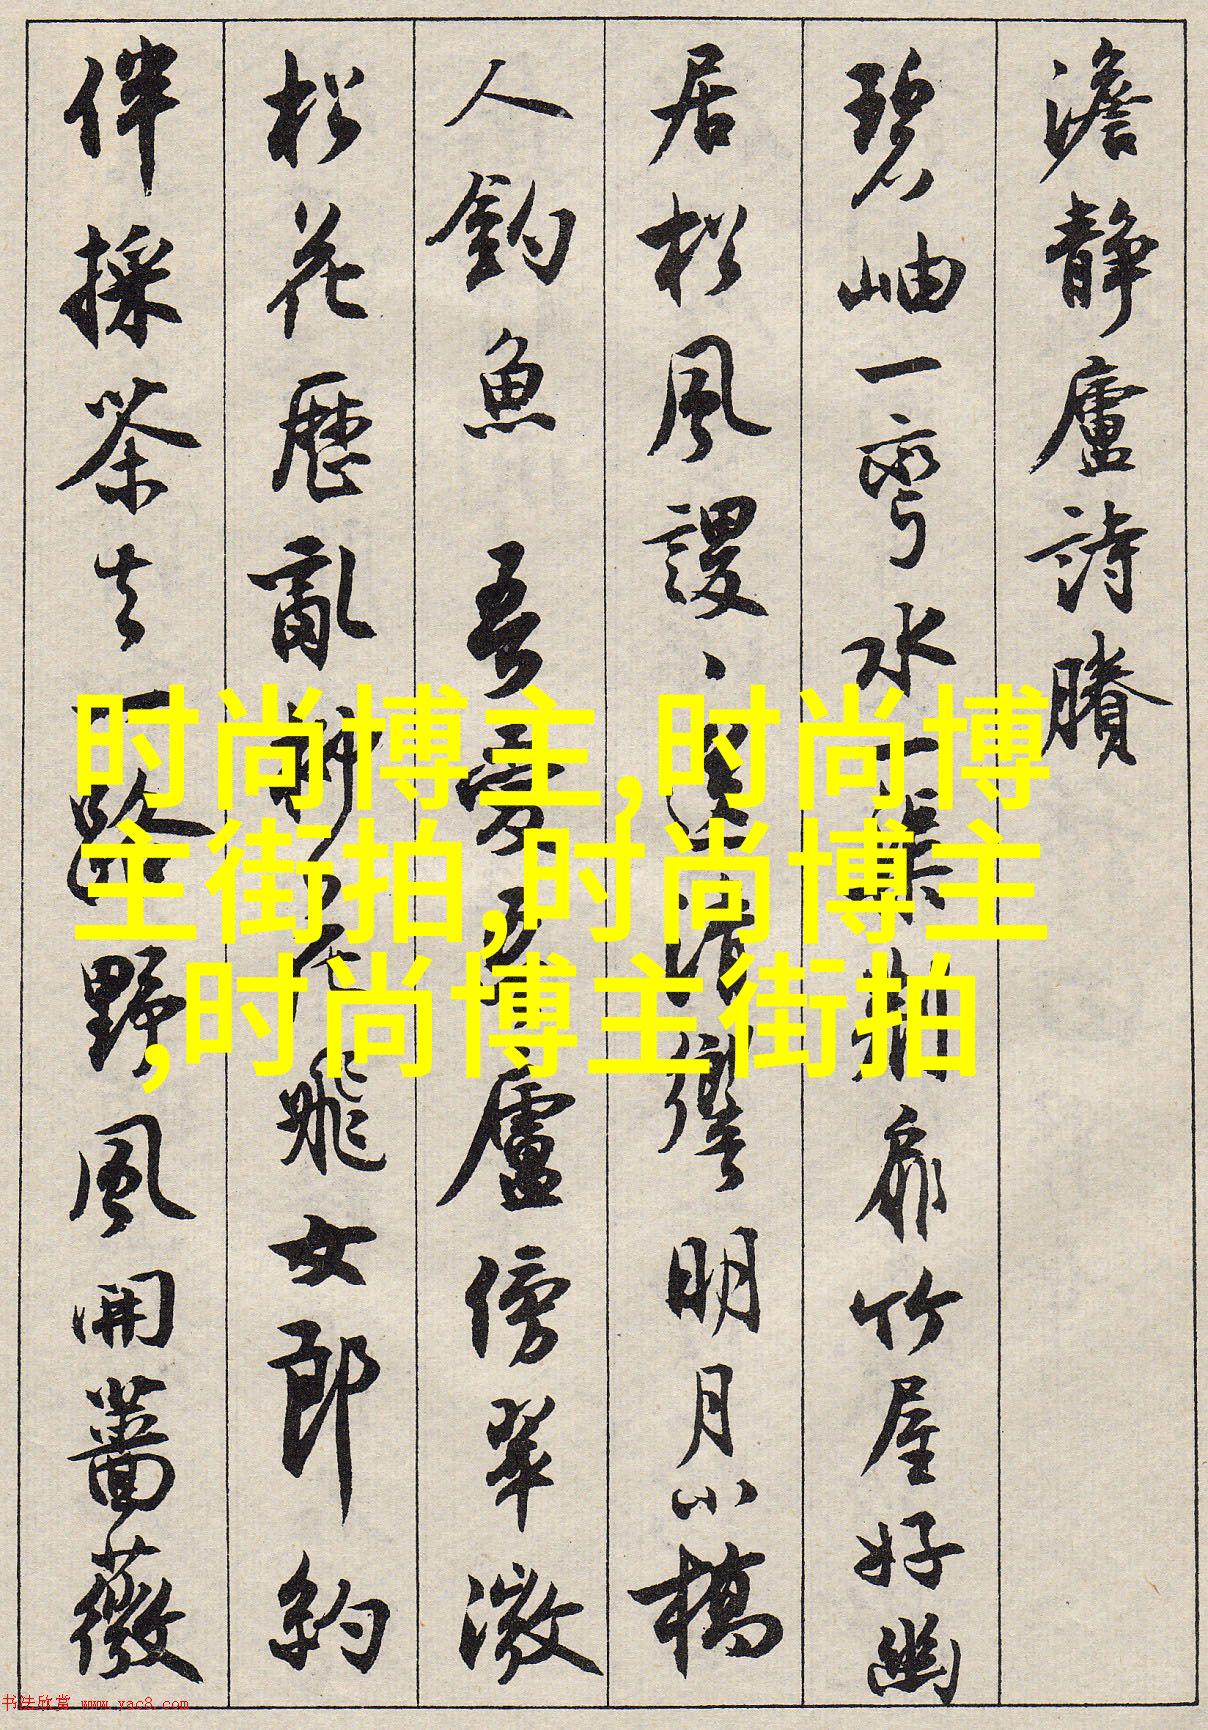 澹静廬詩賸
碧岫一彎水
扉竹屋好幽
居松風謖、
響明月小橋
人釣魚 吾
廬傍翠微
松花歷亂
飛女郎約
伴採茶去一路野風開薔薇
时尚博主,时尚博
主街拍,时尚博主
,时尚博主街拍
书法欣赏 www.yac8.com